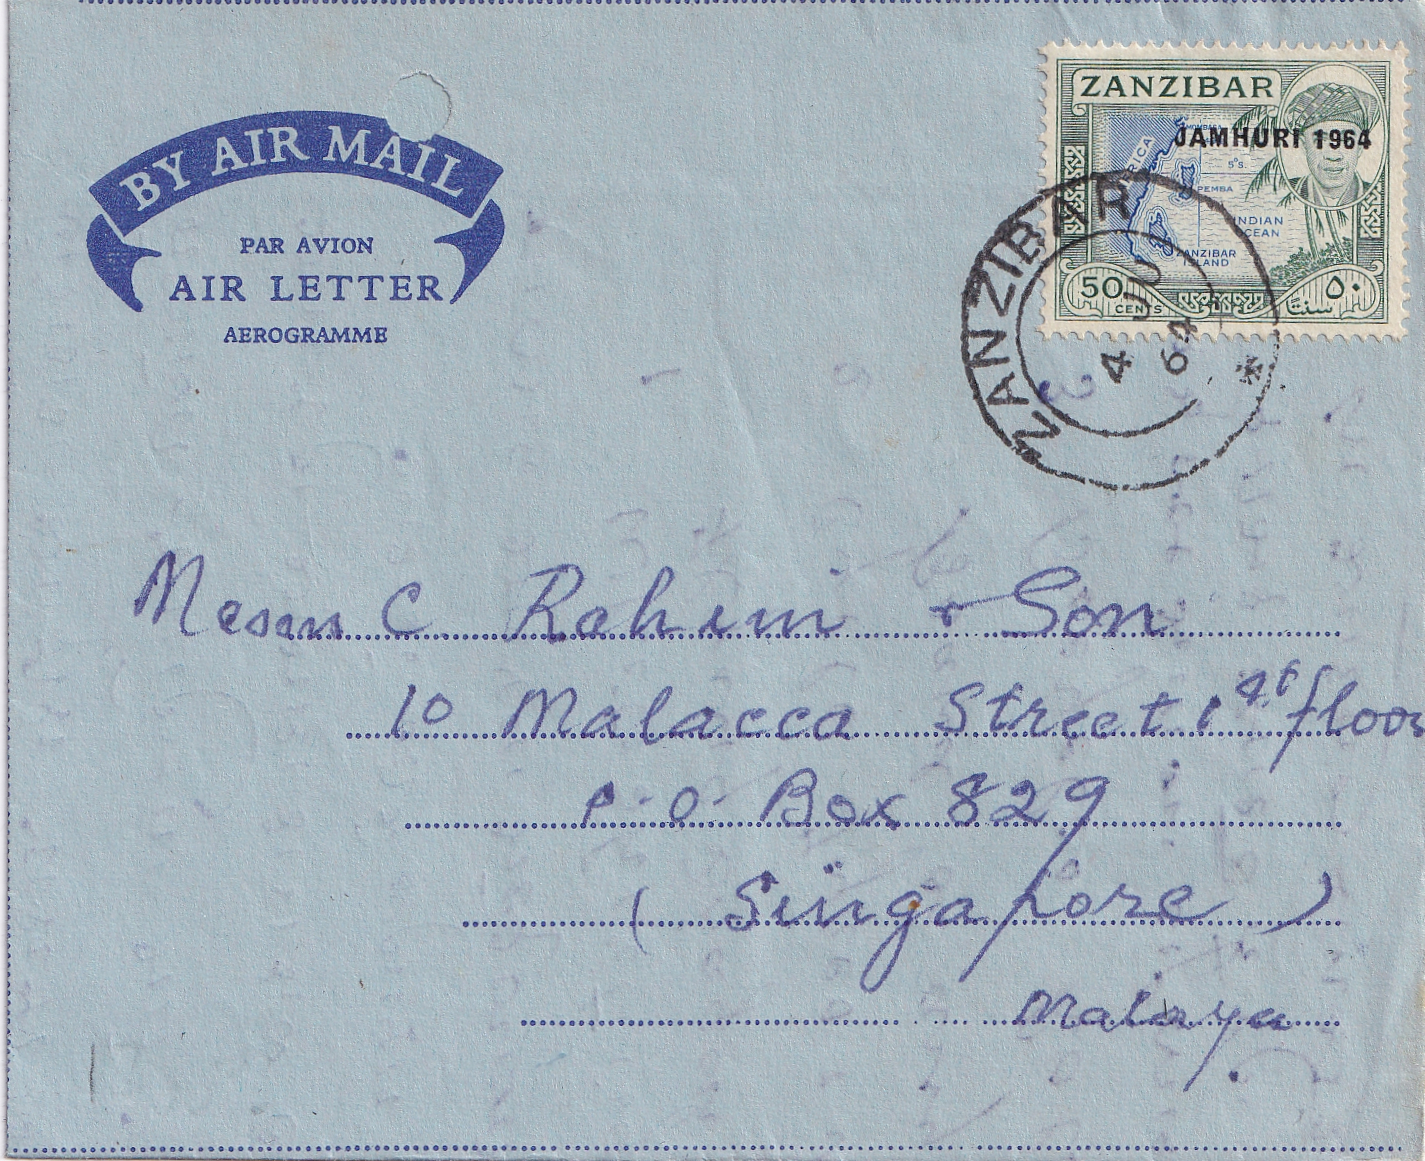 BY AIR MAIL
PAR AVION
AIR LETTER
AEROGRAMME
ZANZIBAR
JAMHURI 1964
5°S.
PEMBA
INDIAN
OCEAN
ZANZIBAR
ISLAND
50
CENTS
٥٠
سنت
ZANZIBAR
4 JU
64
Messrs C Rahim & Son
10 Malacca Street, 4th floor
P.O. Box 829
(Singapore)
Malaya